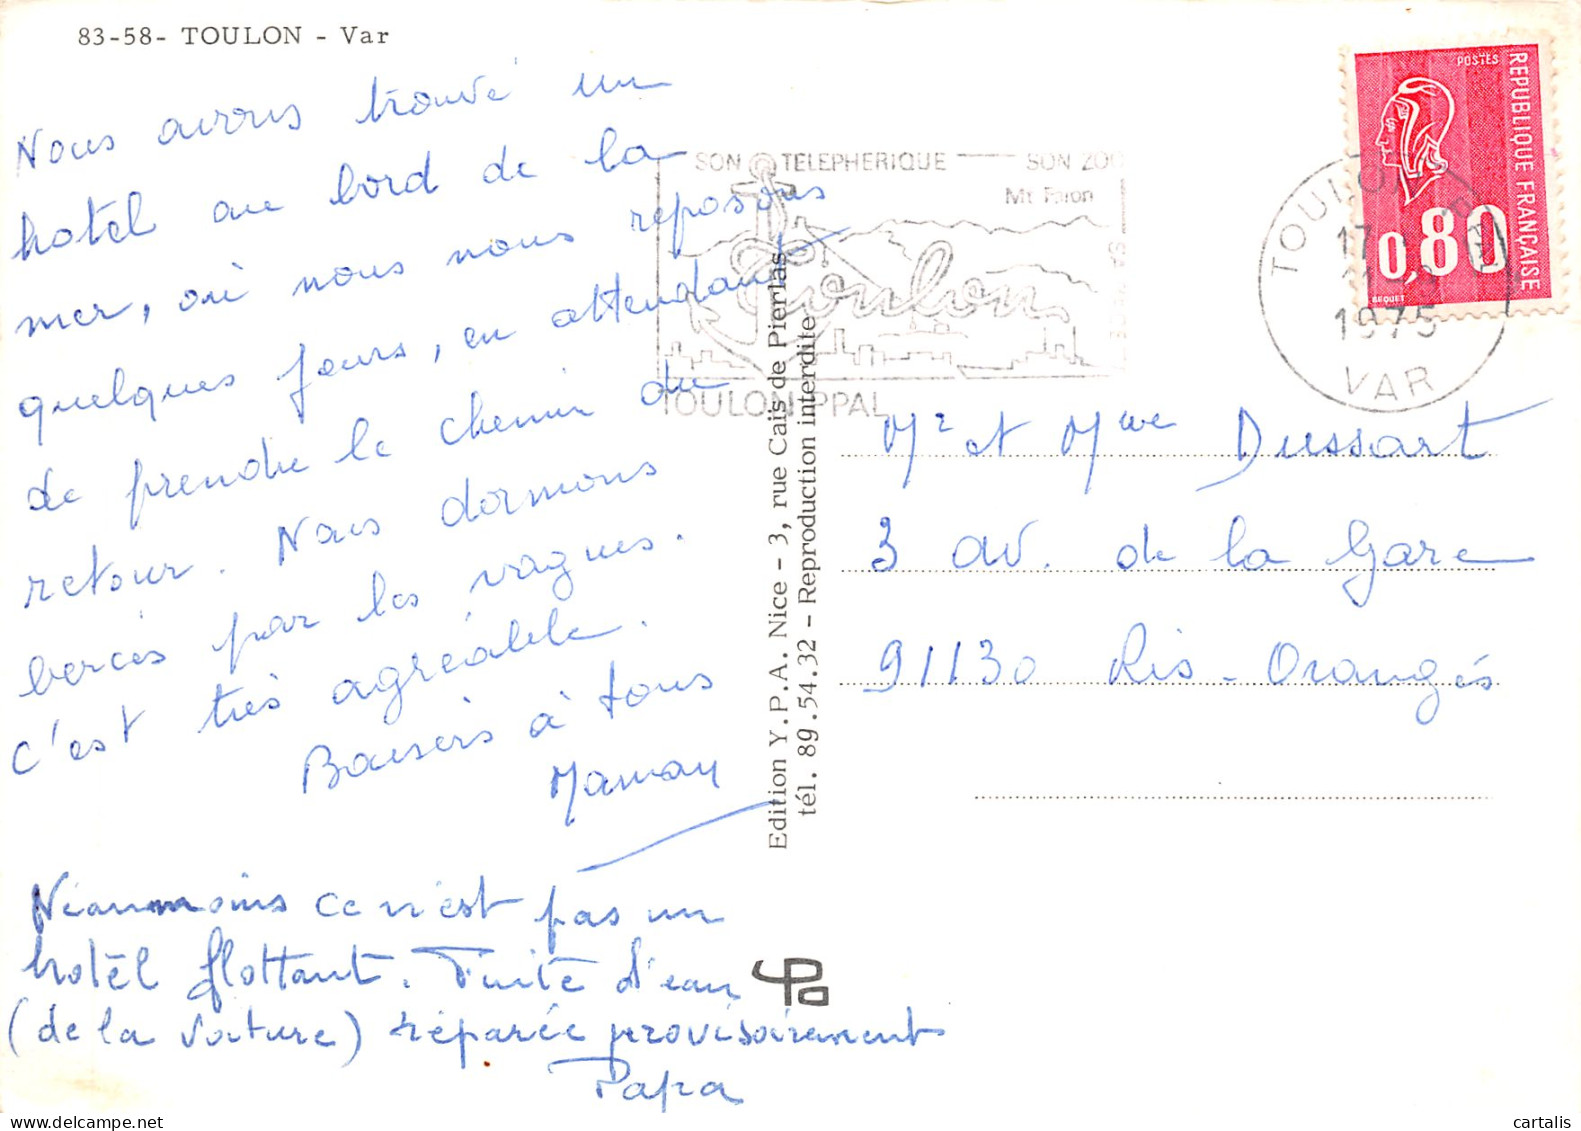 83-58- TOULON - Var
Nous avons trouvé un
hotel au bord de la
mer, où nous nous reposons
quelques jours, en attendant
de prendre le chemin du
retour. Nous dormons
bercés par les vagues.
c'est très agréable.
Baisers à tous
Maman
Néanmoins ce n'est pas un
hotel flottant. Fuite d'eau
(de la voiture) réparée provisoirement
Papa
Edition Y.P.A. Nice - 3, rue Caïs de Pierlas
tél. 89.54.32 - Reproduction interdite
SON TELEPHERIQUE SON ZOO
Mt Faron
Toulon
TOULON PPAL
TOULON
17
1975
VAR
POSTES
REPUBLIQUE FRANÇAISE
0,80
BEQUET
Mr et Mme Dussart
3 av. de la Gare
91130 Ris-Orangés
cartalis sur www.delcampe.net